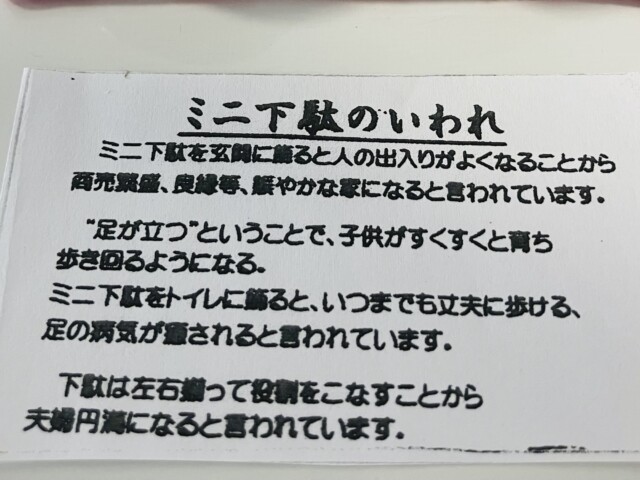 ミニ下駄のいわれ
ミニ下駄を玄関に飾ると人の出入りがよくなることから
商売繁盛、良縁等、賑やかな家になると言われています。
“足が立つ”ということで、子供がすくすくと育ち
歩き回るようになる。
ミニ下駄をトイレに飾ると、いつまでも丈夫に歩ける、
足の病気が癒されると言われています。
下駄は左右揃って役割をこなすことから
夫婦円満になると言われています。